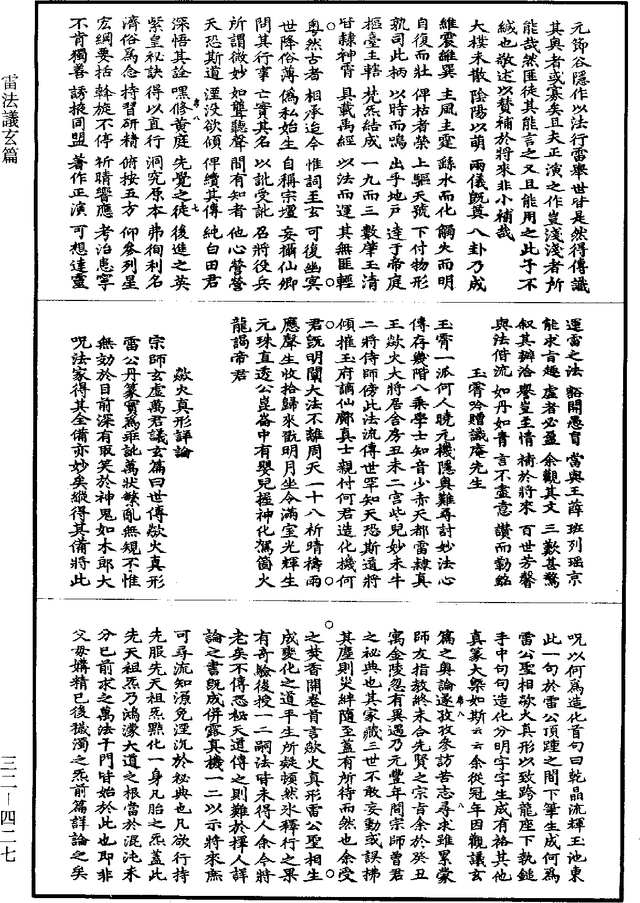 元節谷隱作以法行雷舉世皆是然得傳讖
其奧者或寡矣且夫正演之作豈淺淺者所
能哉然匪徒其能言之又且能用之此予不
緘也敬述以贊補於將來非小補哉
大樸未散 陰陽以萌 兩儀既奠 八卦乃成
維震維巽 主風主霆 繇水而化 觸火而明
自復而壯 俾枯者榮 上驅天號 下付物形
孰司此柄 以時而鳴 出乎地戶 達于帝庭
樞臺主轄 梵炁結成 一九而三 數肇玉清
皆隸神霄 具載禹經 以法而運 其無匪輕
粵然古者 相承迄今 惟詞王玄 可復幽冥
世降俗薄 偽私始生 自稱宗壇 妄攝仙卿
問其行事 亡實其名 以訛受訛 名將役兵
所謂微妙 如聾聽聲 間有知者 他心營營
天恐斯道 湮没欲傾 俾續其傳 純白田君
深悟其詮 嘿修黃庭 先覺之徒 後進之英
紫皇祕訣 得以直行 洞究原本 弗徇利名
濟俗爲念 持習研精 俯按五方 仰參列星
宏綱要括 斡旋不停 祈晴響應 考治惠寧
不肯獨善 誘掖同盟 著作正演 可想達靈
運雷之法 豁開愚盲 當與王薛 班列瑶京
能求旨趣 虛者必盈 余觀其文 三歎甚驚
叙其辦治 譽豈至情 補於將來 百世芳馨
與法偕流 如丹如青 言不盡意 讚而勒銘
玉霄吟贈識庵先生
玉霄一派何人曉元機隱奧難尋討妙法心
傳存幾階八乘學士知音少赤天都雷隸真
王焱火大將居合房丑未二宫些兒妙未牛
二將侍師傍此法流傳世罕知天恐斯道將
傾摧玉府謫仙鄭真士親付何君造化機何
君既明闡大法不離周天一十八祈晴禱雨
應聲生收拾歸來翫明月坐令滿室光輝生
元珠直透公崑崙中有嬰兒握神化駕箇火
龍謁帝君
焱火真形詳論
宗師玄虛萬君議玄篇曰世傳焱火真形
雷公丹篆實爲乖訛萬狀繁亂無規不惟
無効於目前深有取笑於神鬼如木郎大
呪法家得其全備亦妙矣縱得其備將此
呪以何爲造化首句曰乾晶流輝玉池東
此一句於雷公頂踵之間下筆生成何爲
雷公聖相焱火真形以致跨龍座下執鎚
手中句句造化分明字字生成有裕其他
真篆大槩如斯云云余從冠年因觀議玄
篇之奧論遂孜孜參訪苦志尋求雖累蒙
師友指教終未合先賢之宗旨余於癸丑
寓金陵忽有異遇乃元豐年間宗師曾君
之祕典也其家藏三世不敢妄動或誤拂
其塵則災絆隨至蓋有所待而然也余受
之焚香開卷首言焱火真形雷公聖相生
成變化之道平生所疑頓然氷釋行之果
有奇驗後授一二嗣法皆未得人余今將
老矣不傳恐秘天道傳之則難於擇人詳
論之書既成併露真機一二以示將來庶
可尋流知源免湮沉於秘典也凡欲行持
先服先天祖炁點化一身凡胎之炁蓋此
先天祖炁乃鴻濛大道之根當於混沌未
分已前求之萬法千門皆始於此也即非
父母媾精已後穢濁之炁前篇詳論之矣
雷法議玄篇
三二—四二七